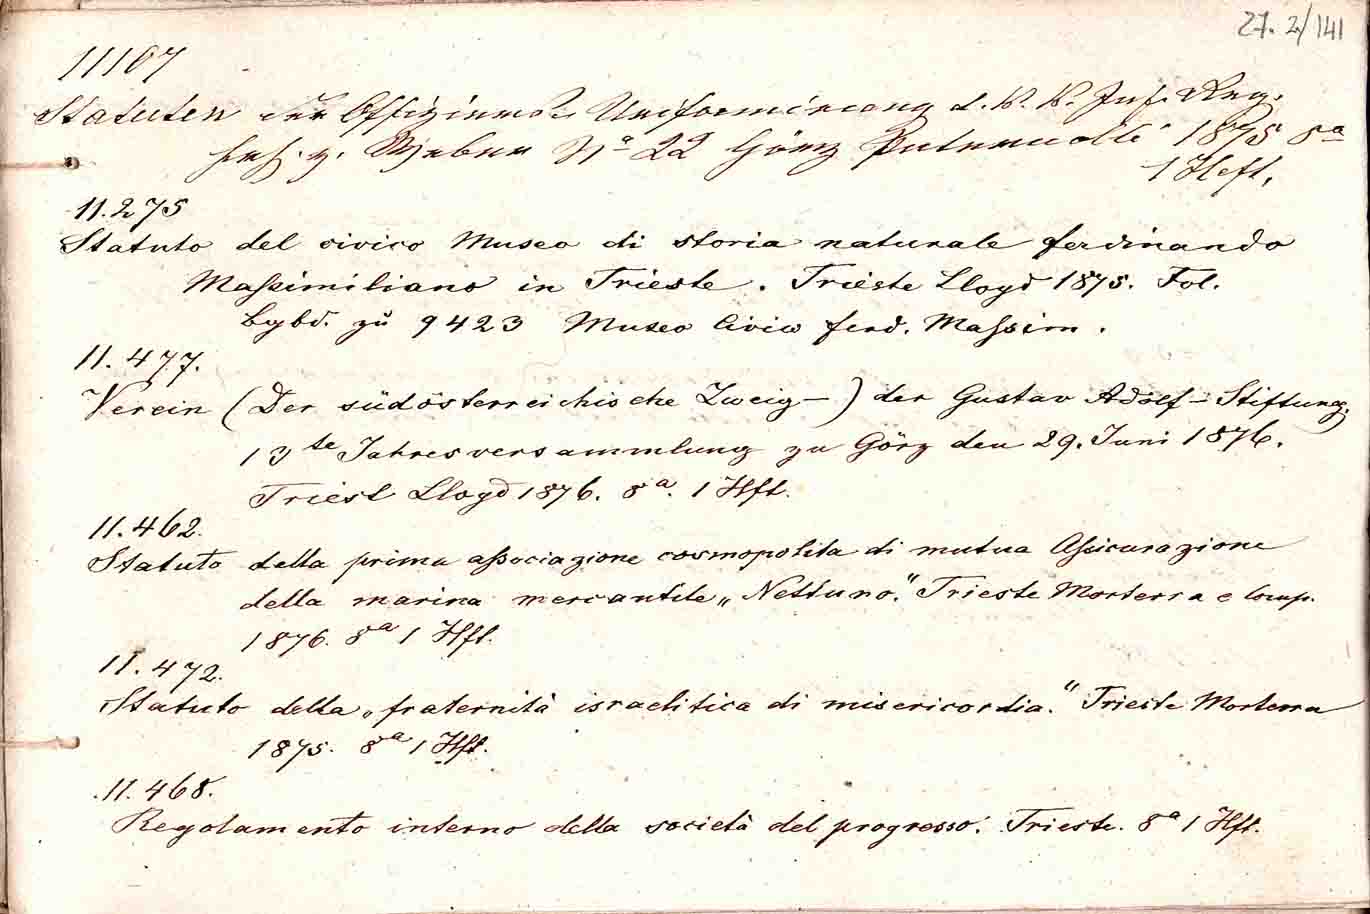 27. 2/141
11107
Statuten der Offiziers Uniformirung d. K. K. Inf. Reg.
Frh. v. Weber No 22 Görz Paternolli 1875 8o
1 Heft,
11.275
Statuto del civico Museo di storia naturale ferdinando
Maſsimiliano in Trieste. Trieste Lloyd 1875. Fol.
bybd. zu 9423 Museo Civico ferd. Maſsim.
11.477.
Verein (Der südösterreichische Zweig-) der Gustav Adolf-Stiftung.
13te Jahresversammlung zu Görz den 29. Juni 1876.
Triest Lloyd 1876. 8o. 1 Hft.
11.462.
Statuto della prima aſsociazione cosmopolita di mutua Aſsicurazione
della marina mercantile „Nettuno“. Trieste Morterra e Comp.
1876. 8o 1 Hft.
11.472.
Statuto della „fraternità israelitica di misericordia.“ Trieste Morterra
1875. 8o 1 Hft.
11.468.
Regolamento interno della società del progresso. Trieste. 8o 1 Hft.